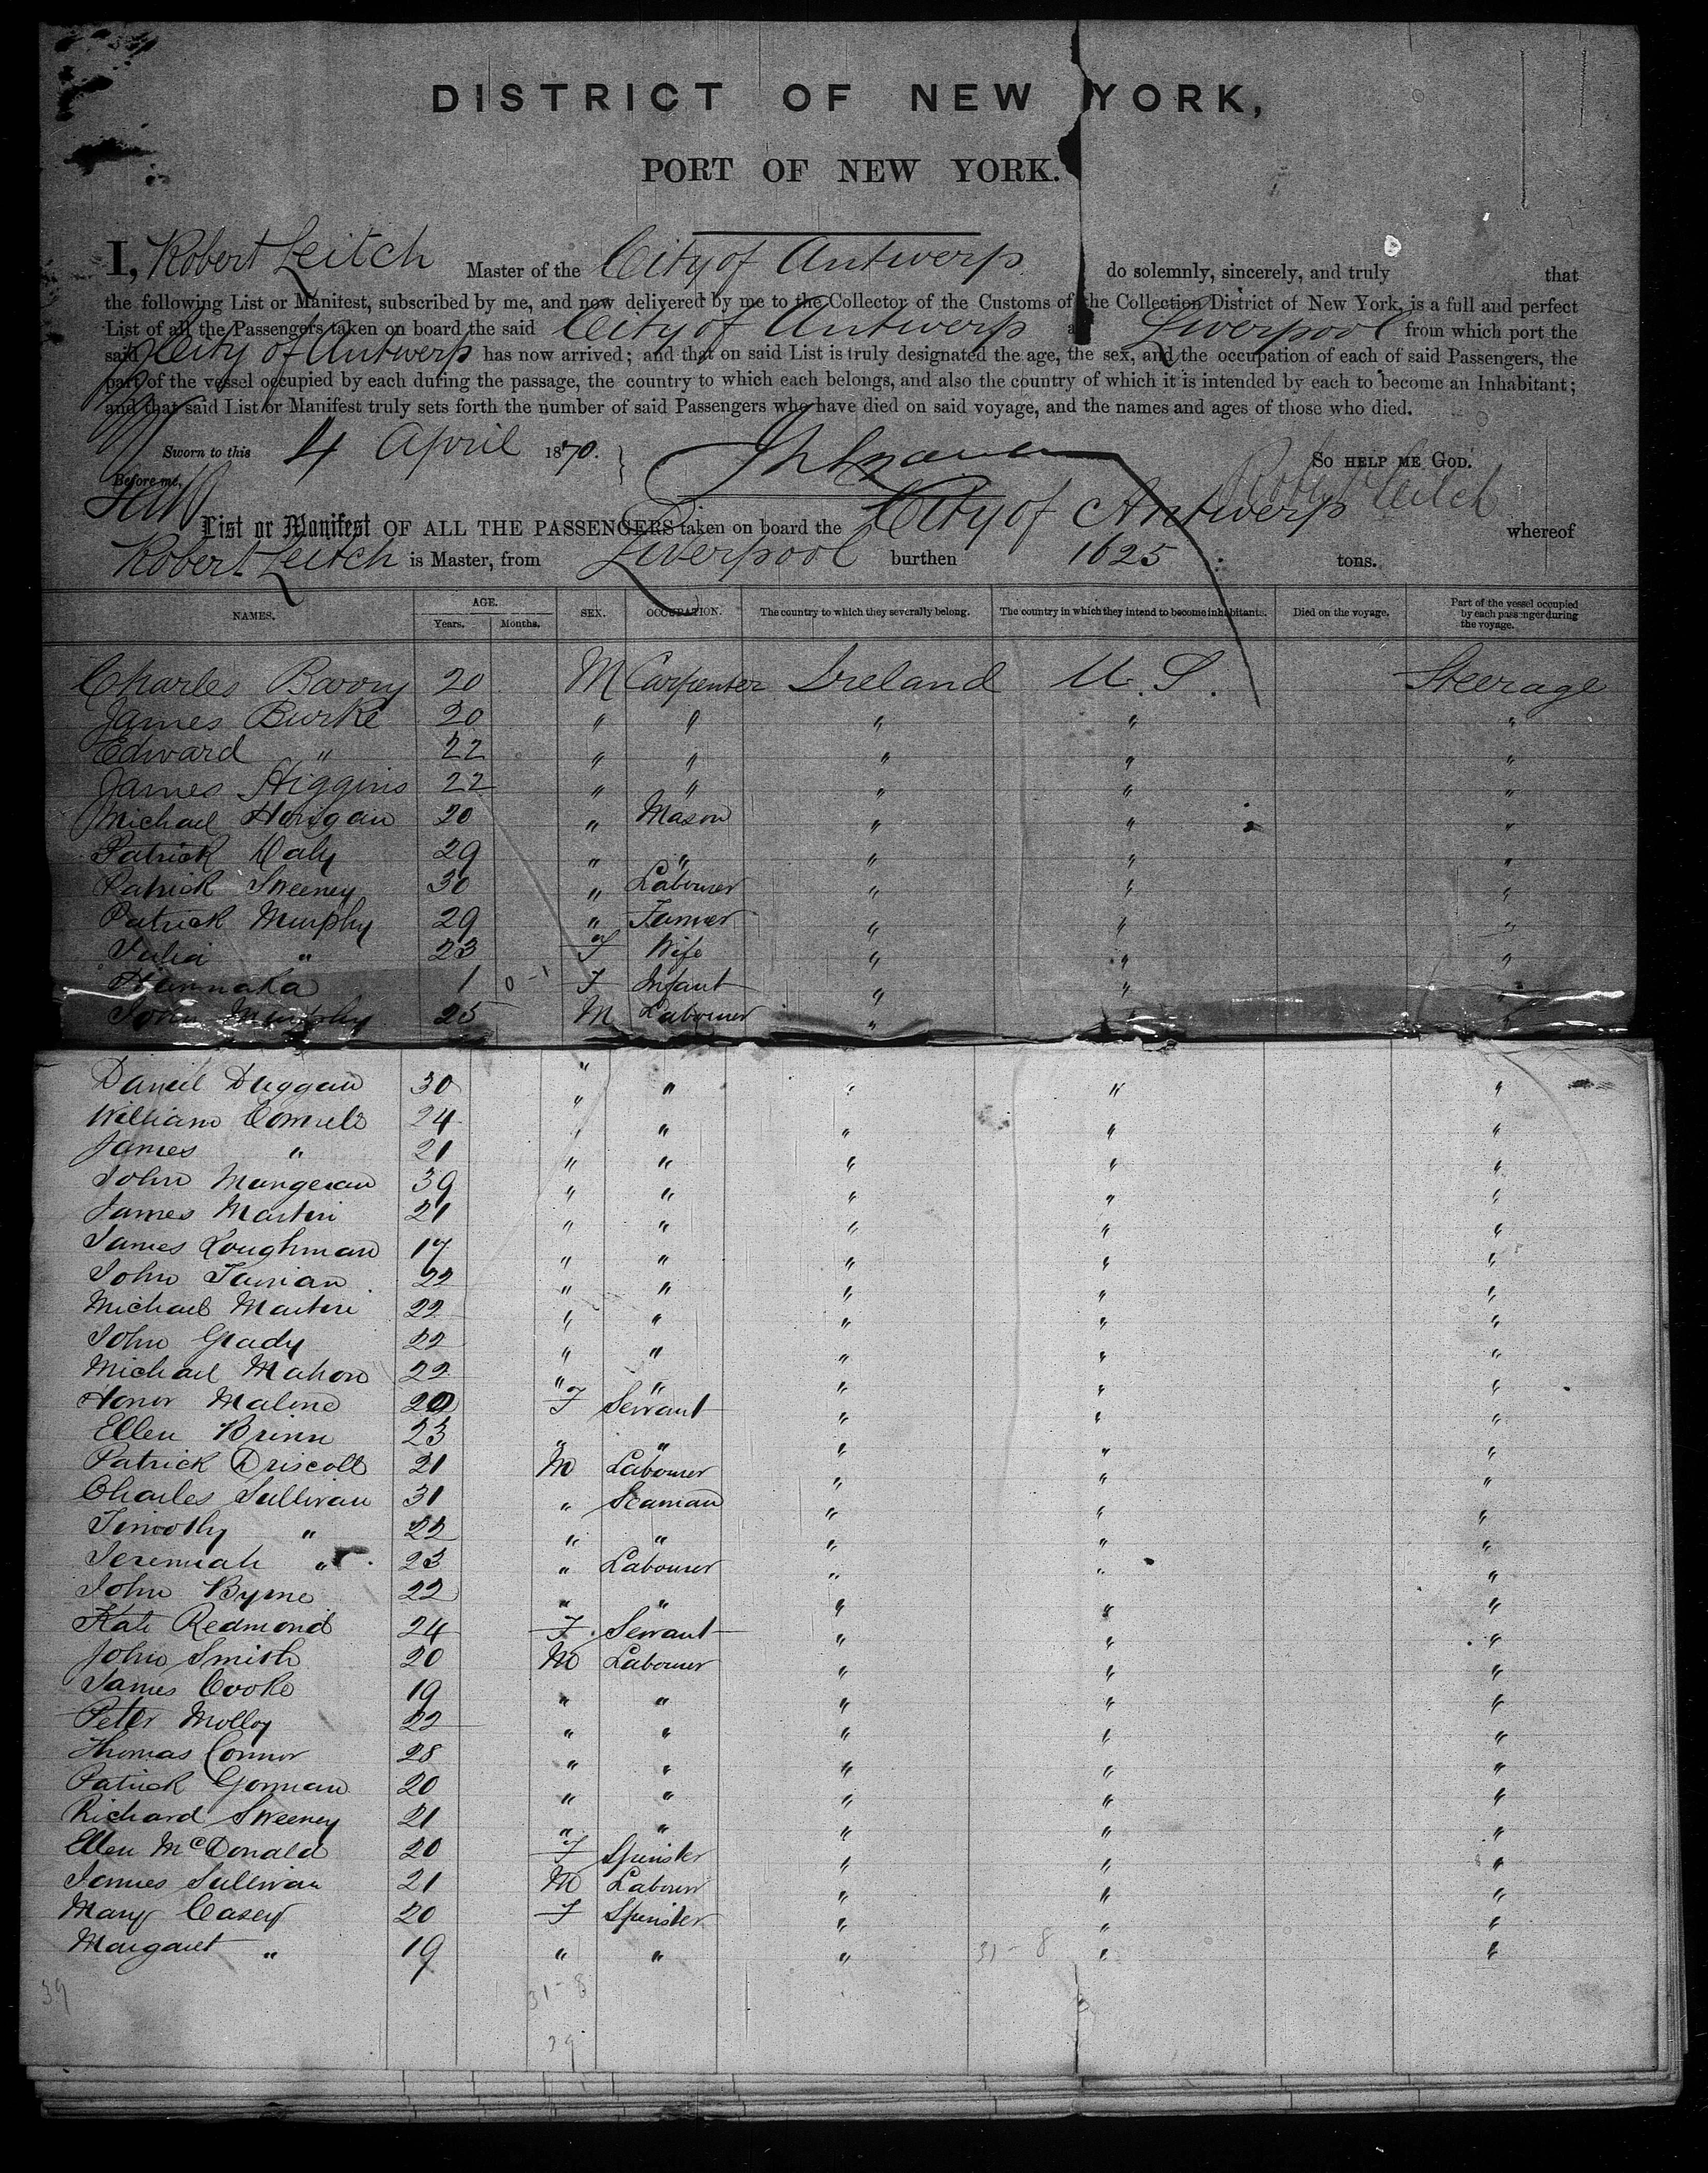 DISTRICT OF NEW YORK,
PORT OF NEW YORK.
I, Robert Leitch Master of the City of Antwerp do solemnly, sincerely, and truly that
the following List or Manifest, subscribed by me, and now delivered by me to the Collector of the Customs of the Collection District of New York, is a full and perfect
List of all the Passengers taken on board the said City of Antwerp at Liverpool from which port the
said City of Antwerp has now arrived; and that on said List is truly designated the age, the sex, and the occupation of each of said Passengers, the
part of the vessel occupied by each during the passage, the country to which each belongs, and also the country of which it is intended by each to become an Inhabitant;
and that said List or Manifest truly sets forth the number of said Passengers who have died on said voyage, and the names and ages of those who died.
Sworn to this 4 April 1870. } So help me God.
Before me, Robert Leitch
List or Manifest OF ALL THE PASSENGERS taken on board the City of Antwerp whereof
Robert Leitch is Master, from Liverpool burthen 1625 tons.
NAMES. AGE. Years. Months. SEX. OCCUPATION. The country to which they severally belong. The country in which they intend to become inhabitants. Died on the voyage. Part of the vessel occupied by each passenger during the voyage.
Charles Barry 20 M Carpenter Ireland U.S. Steerage
James Burke 20 " " " " "
Edward " 22 " " " " "
James Higgins 22 " " " " "
Michael Horigan 20 " Mason " " "
Patrick Daly 29 " " " " "
Patrick Sweeney 30 " Labourer " " "
Patrick Murphy 29 " Farmer " " "
Julia " 23 F Wife " " "
Hannaha 1 0-1 F Infant " " "
John Murphy 25 M Labourer " " "
Daniel Duggan 30 " " " " "
William 24 " " " " "
James " 21 " " " " "
John Mangeran 39 " " " " "
James Martin 21 " " " " "
James Loughman 17 " " " " "
John 22 " " " " "
Michael Martin 22 " " " " "
John Grady 22 " " " " "
Michael Mahon 22 " " " " "
Honor Malone 20 F Servant " " "
Ellen Brinn 23 " " " " "
Patrick Driscoll 21 M Labourer " " "
Charles Sullivan 31 " Seaman " " "
Timothy " 22 " " " " "
Jeremiah " 23 " Labourer " " "
John Byrne 22 " " " " "
Kate Redmond 24 F Servant " " "
John Smith 20 M Labourer " " "
James Cooke 19 " " " " "
Peter Molloy 22 " " " " "
Thomas Connor 28 " " " " "
Patrick Gorman 20 " " " " "
Richard Sweeney 21 " " " " "
Ellen McDonald 20 F Spinster " " "
James Sullivan 21 M Labourer " " "
Mary Casey 20 F Spinster " " "
Margaret " 19 " " " 31-8 " "
39 31-8
39